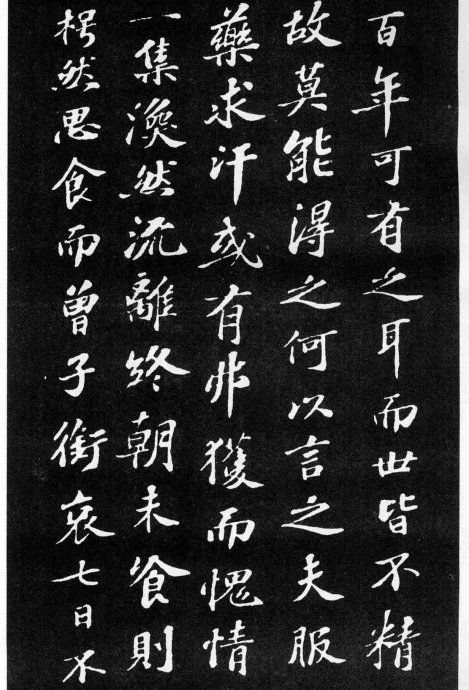 百年可有之耳而世皆不精
故莫能得之何以言之夫服
藥求汗或有非獲而愧情
一集渙然流離終朝未餐則
枵然思食而曾子銜哀七日不